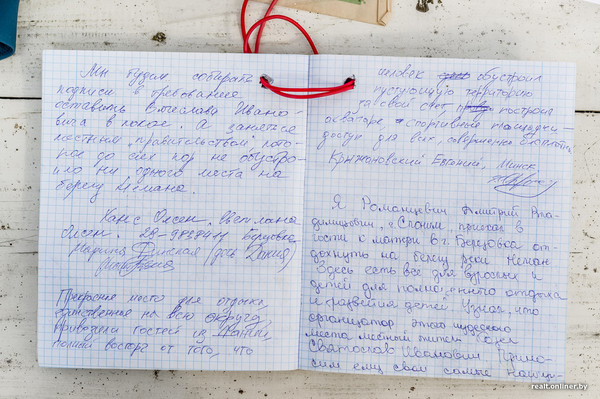 Мы будем собирать
подписи с требованием
оставить Вячеслава Ивано-
вича в покое. А заняться
местным правительством, кото-
рое до сих пор не обустро-
ило ни одного места на
берегу Нёмана.
Ханс Олсен. Светлана
Олсен.
Прекрасное место для отдыха,
единственное на всю округу.
Привозили гостей из
полный восторг от того, что
человек обустроил
пустующую территорию
за свой счёт, построил
спортивные площадки
доступ для всех, совершенно бесплатно
Крыжановский Евгений, Минск
Я Романцевич Дмитрий Вла-
димирович, г. Слоним приехал в
гости к матери в г. Берёзовка от-
дохнуть на берегу реки Неман
Здесь есть все для взрослых и
детей для полноценного отдыха
и развития детей. Узнал, что
организатор этого чудесного
места местный житель
Святослав Иванович. Прино-
сим ему свои самые
realt.onliner.by